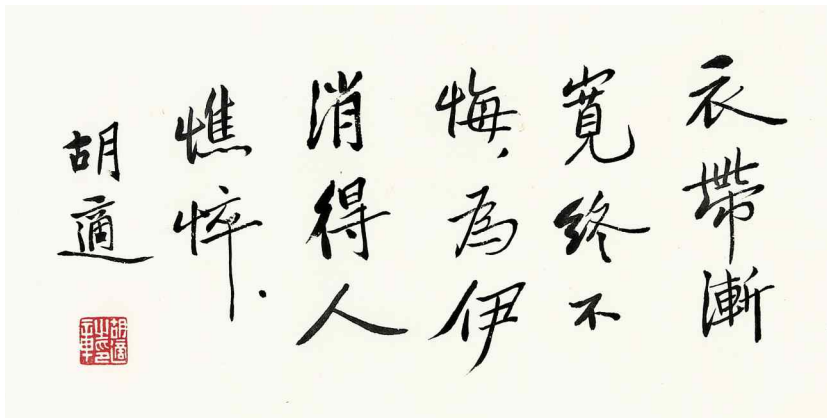 衣帶漸
寬終不
悔,為伊
消得人
憔悴.
胡適
胡適之印章